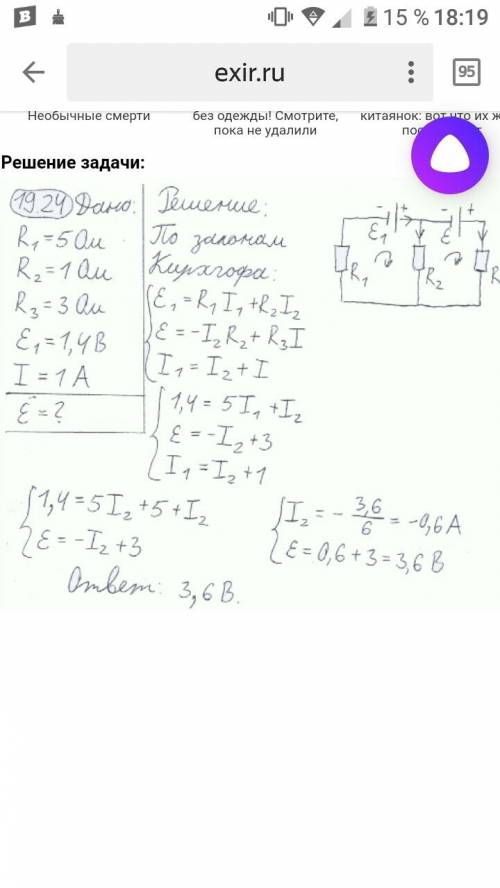 15 % 18:19
exir.ru
95
Необычные смерти
без одежды! Смотрите,
пока не удалили
китаянок: вот что их ж
Решение задачи:
19.24 Дано:
R₁ = 5 Ом
R₂ = 1 Ом
R₃ = 3 Ом
ℰ₁ = 1,4 В
I = 1 А
ℰ = ?
Решение:
По законам
Кирхгофа:
ℰ₁ = R₁I₁ + R₂I₂
ℰ = -I₂R₂ + R₃I
I₁ = I₂ + I
1,4 = 5I₁ + I₂
ℰ = -I₂ + 3
I₁ = I₂ + 1
- + - +
ℰ₁ ℰ
R₁ R₂ R
1,4 = 5I₂ + 5 + I₂
ℰ = -I₂ + 3
I₂ = - 3,6/6 = -0,6 А
ℰ = 0,6 + 3 = 3,6 В
Ответ: 3,6 В.